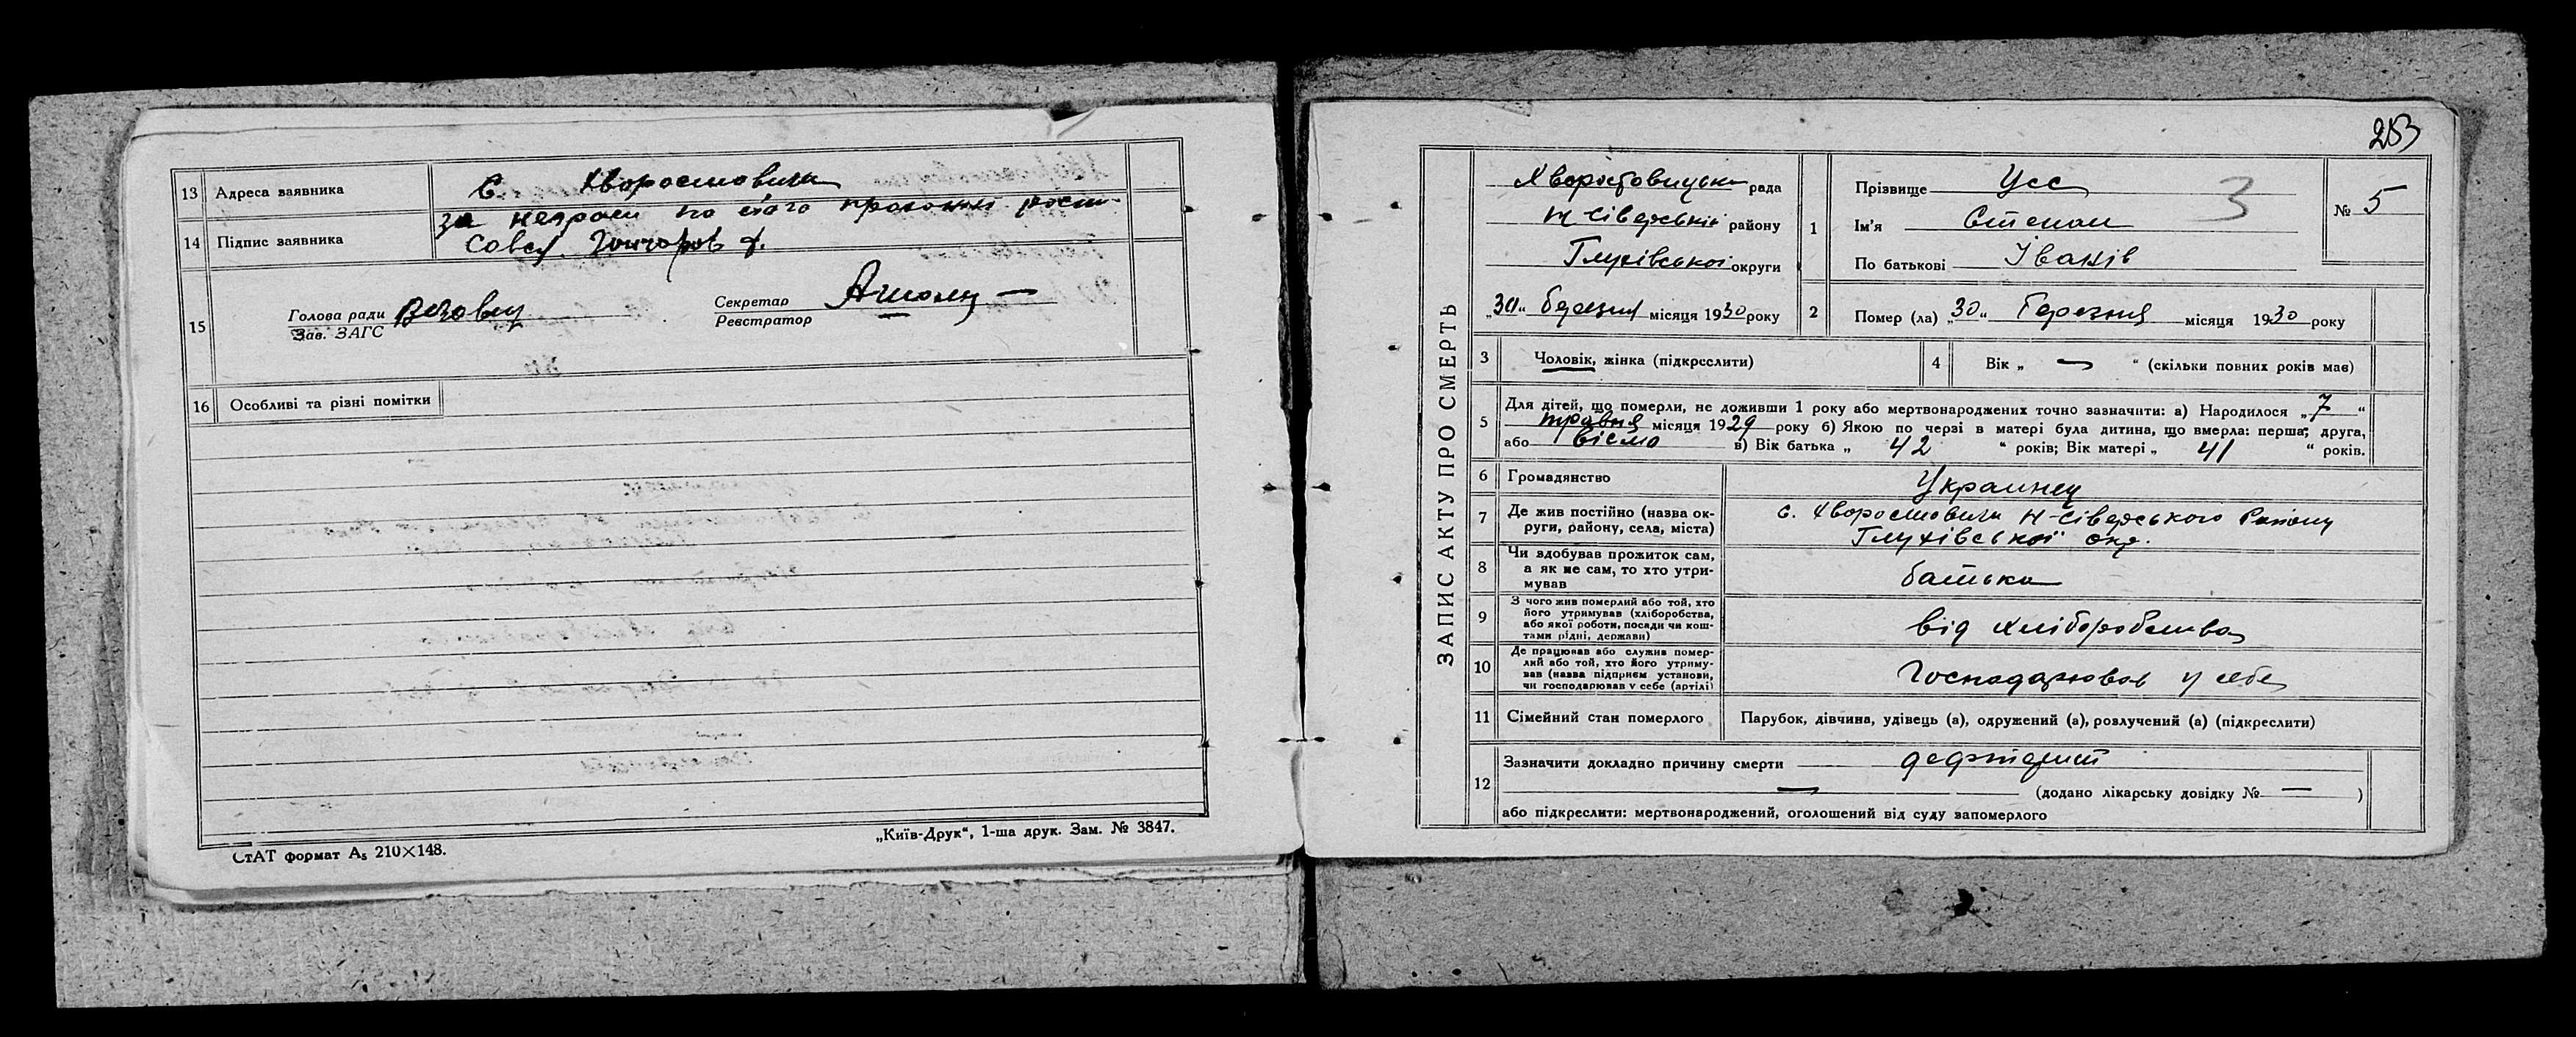 13 Адреса заявника с. Хворостовичи
14 Підпис заявника за неграм. по його проханні росп.
Совєт Гончаров
15 Голова ради
Зав. ЗАГС
Секретар
Реєстратор
16 Особливі та різні помітки
СтАТ формат А5 210×148.
„Київ-Друк“, 1-ша друк. Зам. № 3847.
253
ЗАПИС АКТУ ПРО СМЕРТЬ
Хворостовицька рада
Н-Сіверський району
Глухівської округи
„30“ березня місяця 1930 року
1 Прізвище Усс
Ім'я Степан
По батькові Іванів
3
№ 5
2 Помер (ла) „30“ березня місяця 1930 року
3 Чоловік, жінка (підкреслити)
4 Вік „ — “ (скільки повних років має)
5 Для дітей, що померли, не доживши 1 року або мертвонароджених точно зазначити: а) Народилося „7“
травня місяця 1929 року б) Якою по черзі в матері була дитина, що вмерла: перша, друга,
або вісмо в) Вік батька „ 42 “ років; Вік матері „ 41 “ років.
6 Громадянство Украинец
7 Де жив постійно (назва округи, району, села, міста) с. Хворостовичи Н-Сіверського Району
Глухівської окр.
8 Чи здобував прожиток сам,
а як не сам, то хто утри-
мував батько
9 З чого жив померлий або той, хто
його утримував (хліборобства,
або якої роботи, посади чи кош-
тами рідні, держави) від хліборобства
10 Де працював або служив помер-
лий або той, хто його утриму-
вав (назва підприєм установи,
чи господарював у себе (артілі) Господарював у себе
11 Сімейний стан померлого Парубок, дівчина, удівець (а), одружений (а), розлучений (а) (підкреслити)
12 Зазначити докладно причину смерти дефтерит
— (додано лікарську довідку № — )
або підкреслити: мертвонароджений, оголошений від суду запомерлого